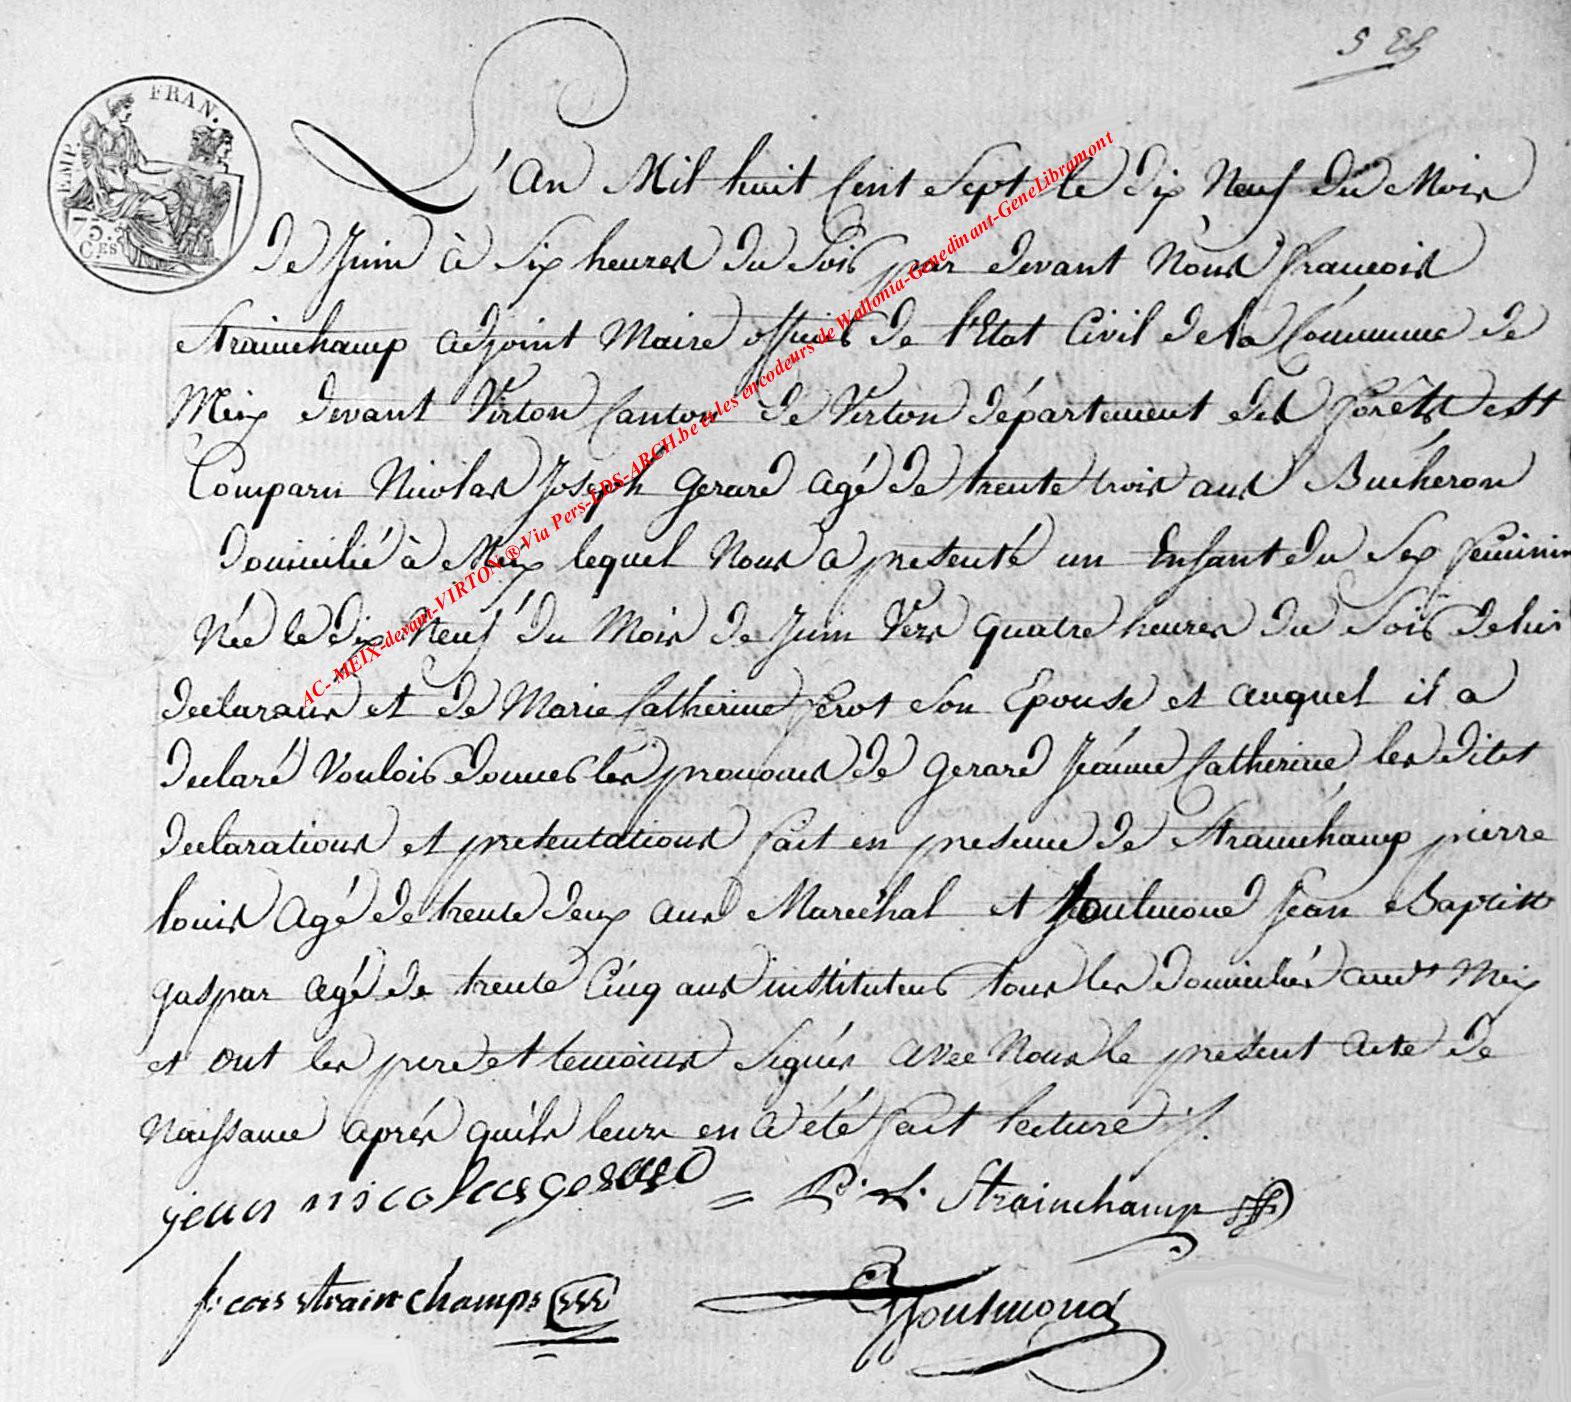 EMP. FRAN.
75.
C.ES
L'An Mil huit Cent Sept le dix Neuf du Mois
de Juin à Six heures du Soir par devant Nous francois
Strainchamp adjoint Maire officier de l'Etat Civil de la Commune de
Meix devant Virton Canton de Virton département des forêts est
Comparu Nicolas Joseph Gerard agé de trente trois ans Bucheron
domicilié à Meix lequel Nous a presenté un Enfant du Sex feminin
Née le dix Neuf du Mois de Juin Vers quatre heures du Soir de lui
declarant et de Marie Catherine Perot Son Epouse et auquel il a
declaré Vouloir donner les prenoms de Gerard Jeanne Catherine les dites
declarations et presentations fait en presence de Strainchamp pierre
louis Agé de trente deux ans Marechal et foulmond Jean Baptist
gaspar agé de trente Cinq ans instituteur tous les domiciliés Meix
et ont les pere et temoins Signés avec Nous le present acte de
Naissance aprés qu'ils leurs en a été fait lecture
jean nicolas gerard = P. L. Strainchamp
strainchamps foulmond
AC- MEIX-devant-VIRTON ® Via Pers-LDS-ARCH.be et les encodeurs de Wallonia-Genedinant-GeneLibramont